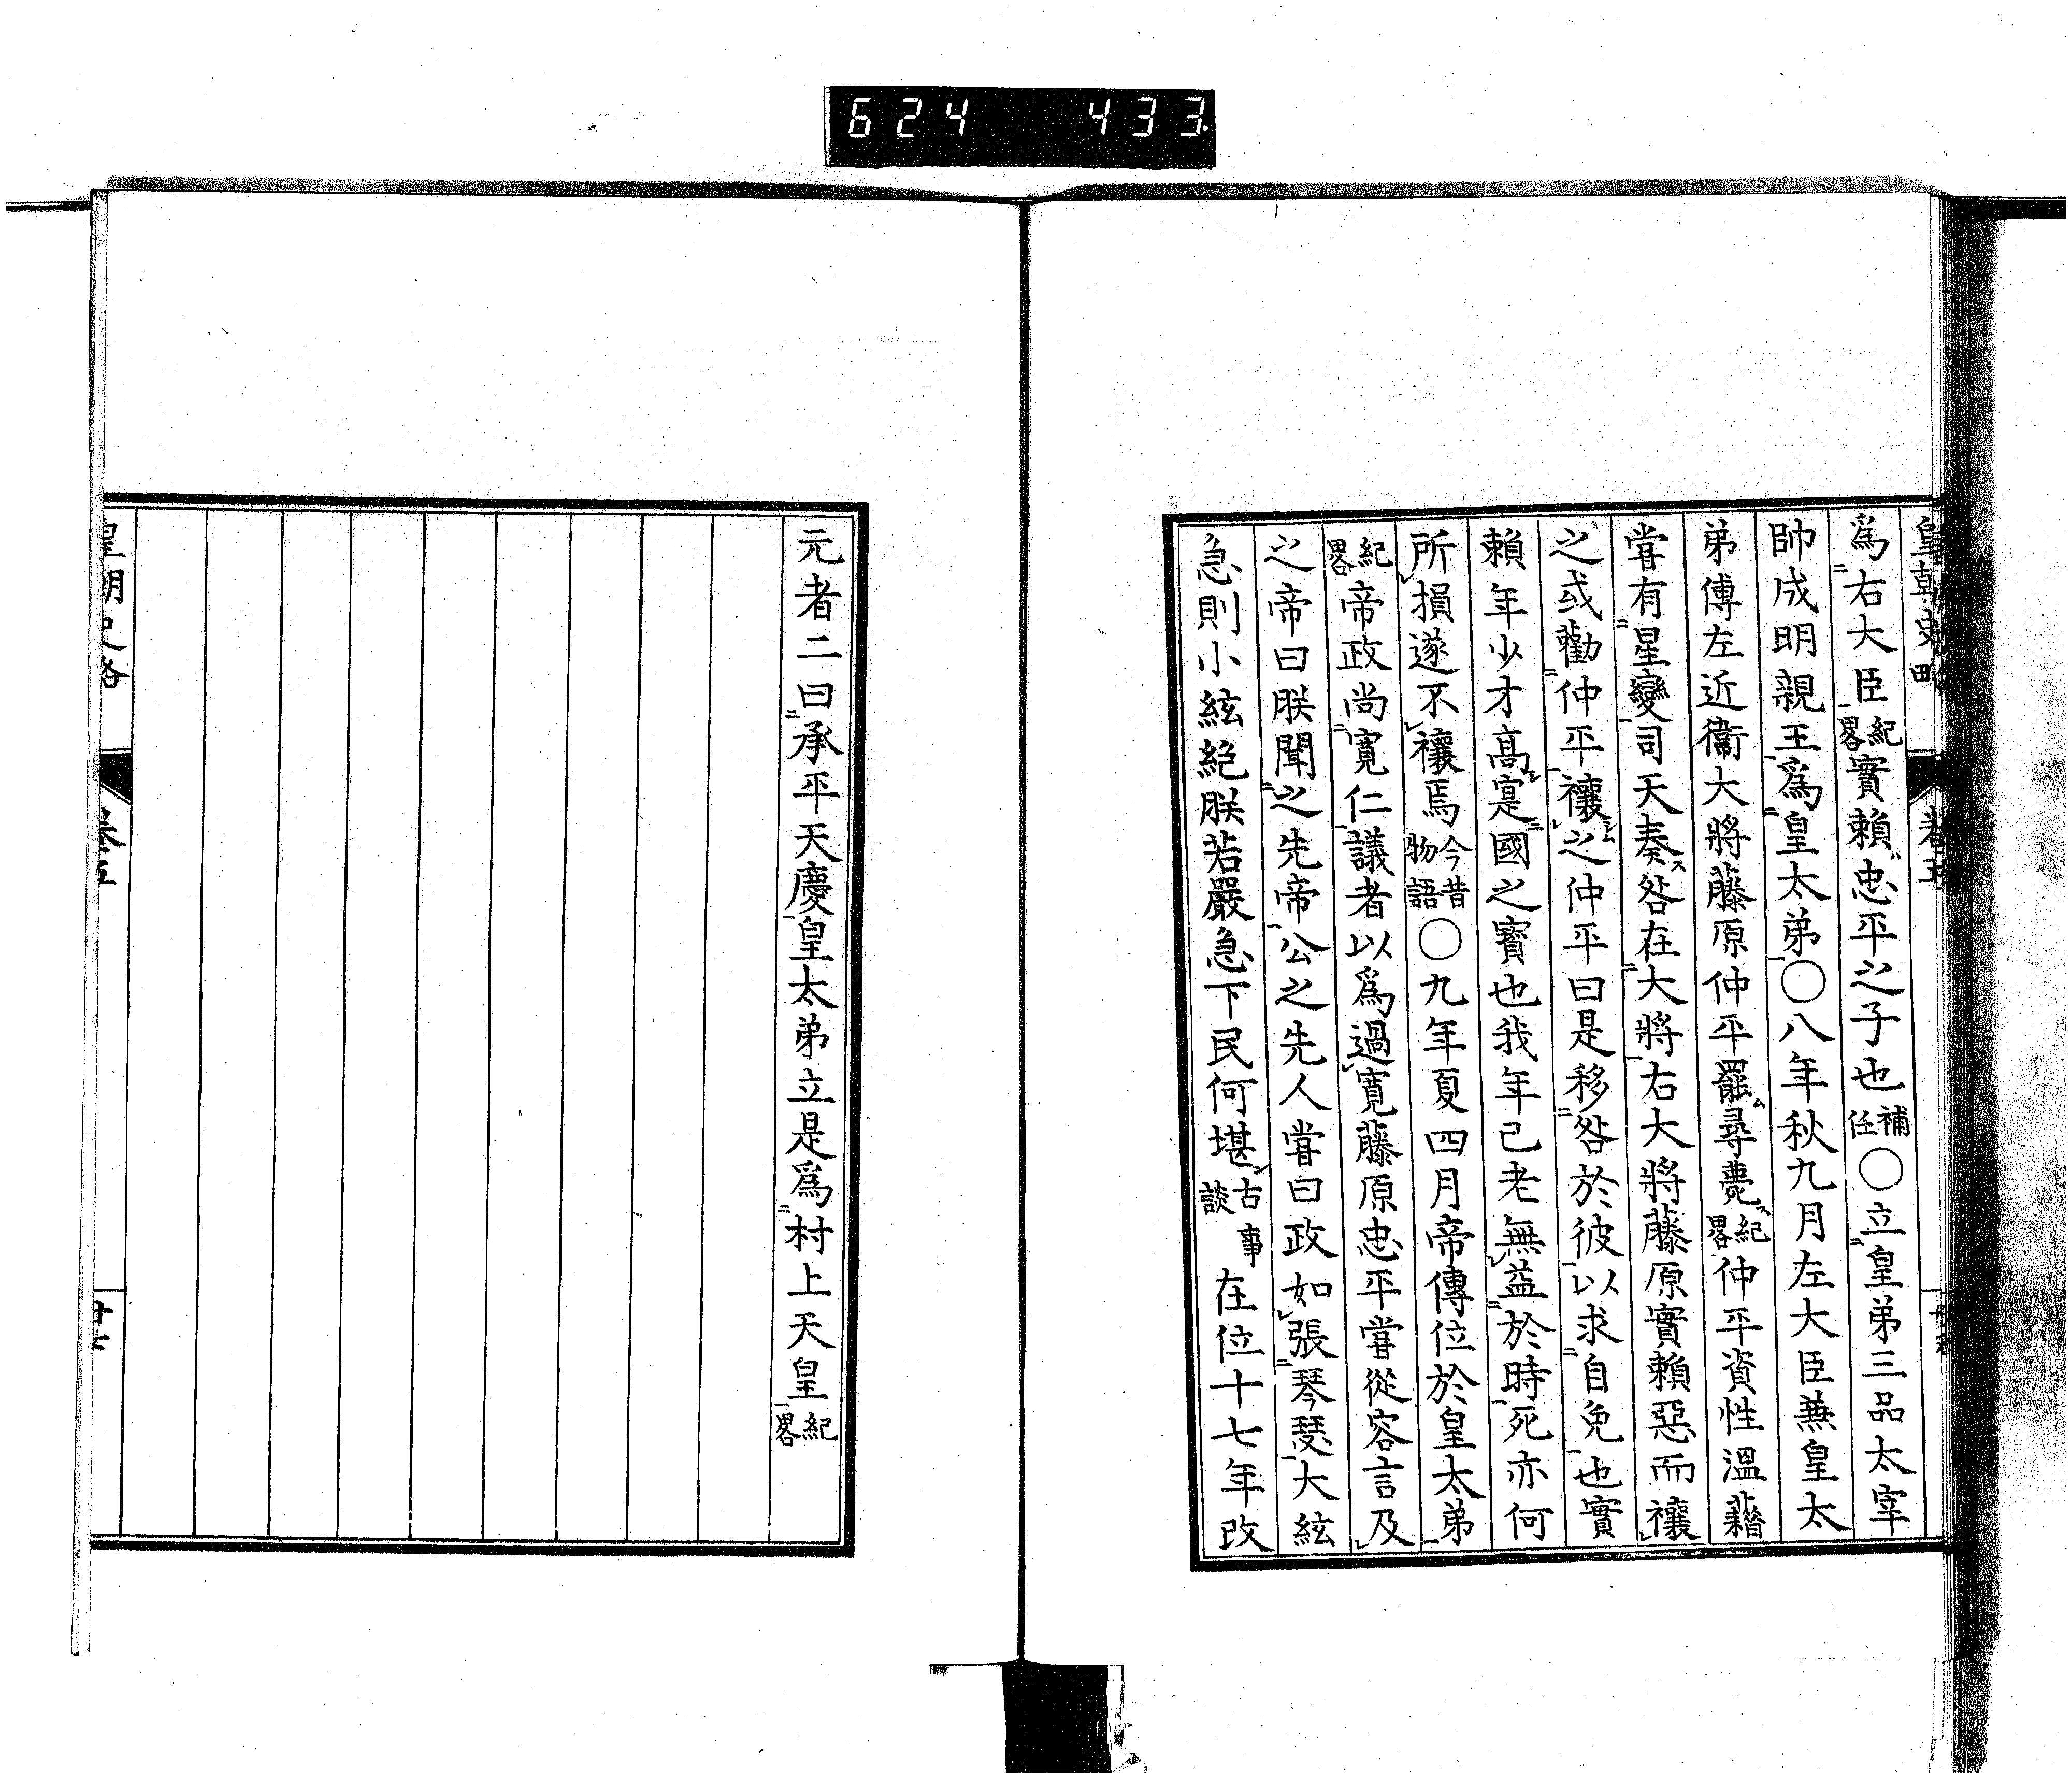 624 433
爲右大臣紀畧實賴忠平之子也補任〇立皇弟三品太宰
帥成明親王爲皇太弟〇八年秋九月左大臣兼皇太
弟傅左近衞大將藤原仲平罷尋薨紀畧仲平資性溫藉
嘗有星變司天奏咎在大將右大將藤原實賴惡而禳
之或勸仲平禳之仲平曰是移咎於彼以求自免也實
賴年少才高寔國之寶也我年已老無益於時死亦何
所損遂不禳焉今昔物語〇九年夏四月帝傳位於皇太弟
紀畧帝政尚寬仁議者以爲過寬藤原忠平嘗從容言及
之帝曰朕聞之先帝公之先人嘗曰政如張琴瑟大絃
急則小絃絕朕若嚴急下民何堪古事談在位十七年改
元者二曰承平天慶皇太弟立是爲村上天皇紀畧